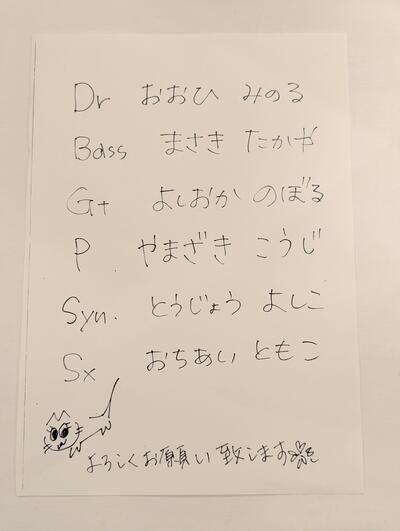 Dr おおひ みのる
Bass まさき たかや
Gt よしおか のぼる
P やまざき こうじ
Syn. とうじょう よしこ
Sx おちあい ともこ
よろしくお願い致します